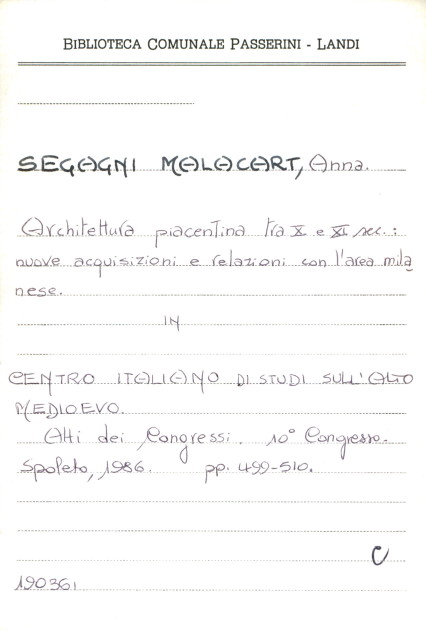 BIBLIOTECA COMUNALE PASSERINI - LANDI
SEGAGNI MALACART, Anna.
Architettura piacentina tra X e XI sec.:
nuove acquisizioni e relazioni con l'area mila
nese.
IN
CENTRO ITALIANO DI STUDI SULL'ALTO
MEDIOEVO.
Atti dei Congressi. 10° Congresso.
Spoleto, 1986. pp. 499-510.
C
190361